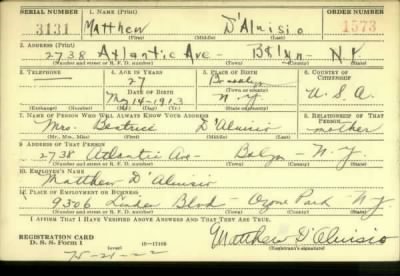 SERIAL NUMBER 1. NAME (Print) ORDER NUMBER
3131 Matthew D'Aluisio 1573
(First) (Middle) (Last)
2. ADDRESS (Print)
2738 Atlantic Ave - Bklyn - N.Y
(Number and street or R. F. D. number) (Town) (County) (State)
3. TELEPHONE 4. AGE IN YEARS 5. PLACE OF BIRTH 6. COUNTRY OF CITIZENSHIP
27 Brooklyn
DATE OF BIRTH (Town or county)
May 14-1913 N-Y U.S.A.
(Exchange) (Number) (Mo.) (Day) (Yr.) (State or country)
7. NAME OF PERSON WHO WILL ALWAYS KNOW YOUR ADDRESS 8. RELATIONSHIP OF THAT PERSON
Mrs. Beatrice D'Aluisio mother
(Mr., Mrs., Miss) (First) (Middle) (Last)
9. ADDRESS OF THAT PERSON
2738 Atlantic Ave - Bklyn - N-Y
(Number and street or R. F. D. number) (Town) (County) (State)
10. EMPLOYER'S NAME
Matthew D'Aluisio
11. PLACE OF EMPLOYMENT OR BUSINESS
9306 Linden Blvd - Ozone Park - NY
(Number and street or R. F. D. number) (Town) (County) (State)
I AFFIRM THAT I HAVE VERIFIED ABOVE ANSWERS AND THAT THEY ARE TRUE.
REGISTRATION CARD
D. S. S. Form 1 (over) 16-17105 Matthew D'Aluisio
(Registrant's signature)